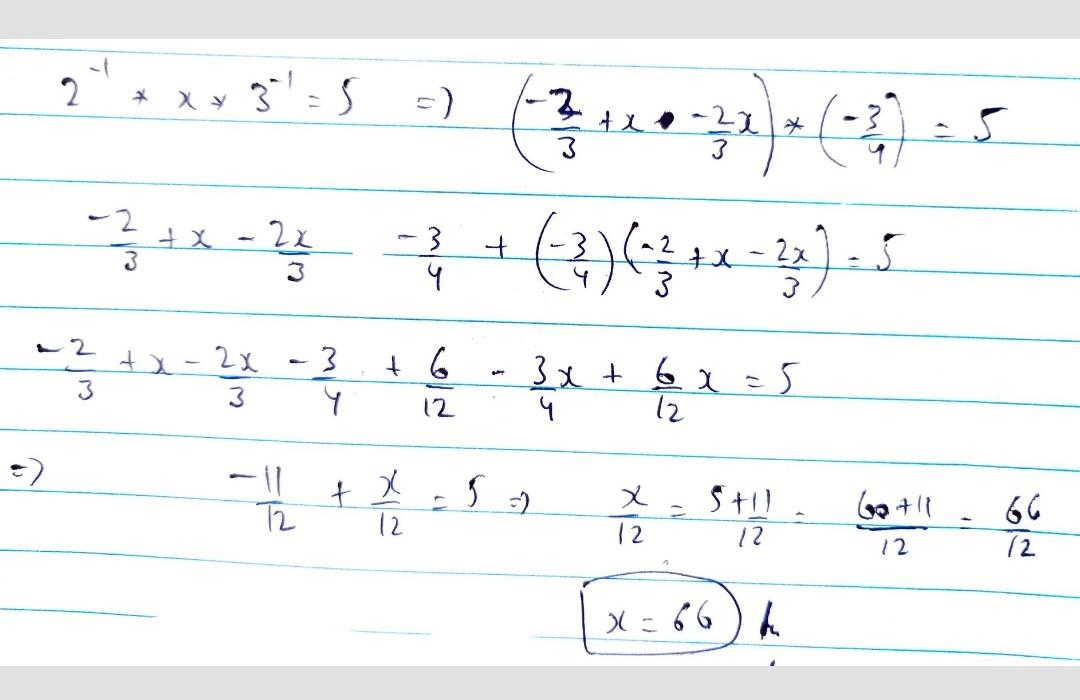 2^-1 * x * 3^-1 = 5 => (-2/3 + x • -2x/3) * (-3/4) = 5
-2/3 + x - 2x/3 -3/4 + (-3/4)(-2/3 + x - 2x/3) = 5
-2/3 + x - 2x/3 - 3/4 + 6/12 - 3x/4 + 6/12 x = 5
=> -11/12 + x/12 = 5 => x/12 = 5+11/12 = 60+11/12 = 66/12
x = 66